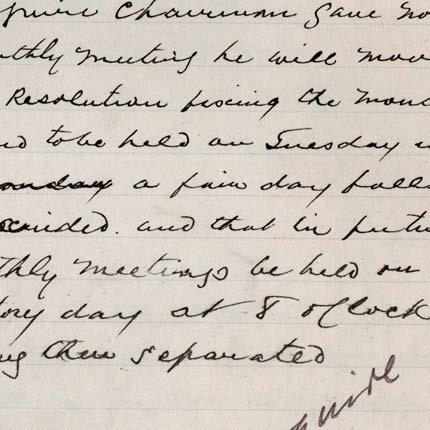 Chairman gave no
thly meeting he will mov
Resolution fixing the mon
to be held on Tuesday
a fair day fall
scinded. and that in futu
thly meetings be held on
day at 8 o'clock
ng then separated